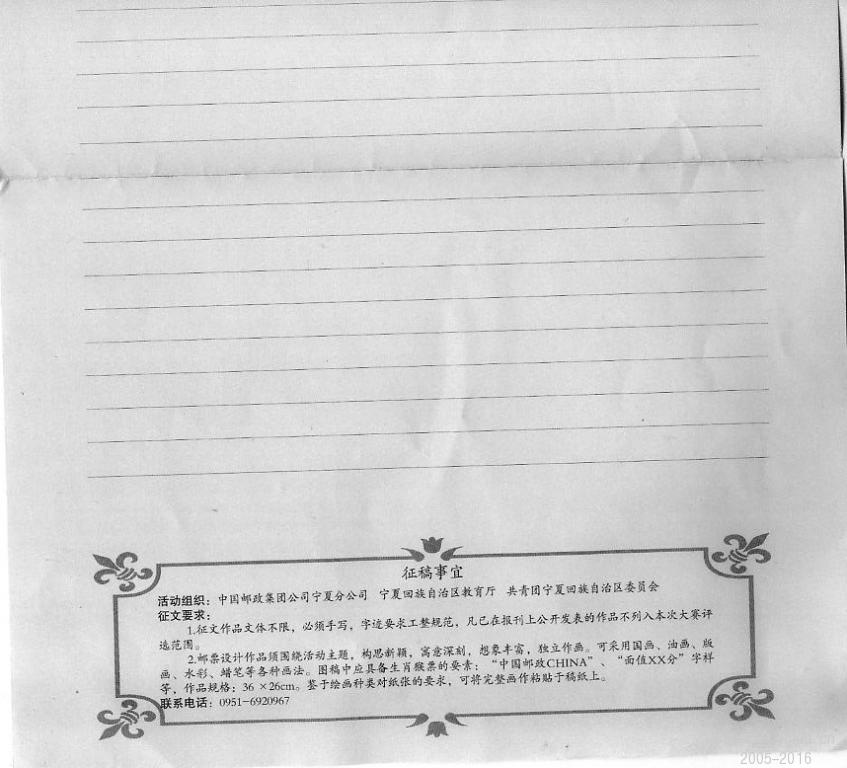 征稿事宜
活动组织：中国邮政集团公司宁夏分公司 宁夏回族自治区教育厅 共青团宁夏回族自治区委员会
征文要求：
1.征文作品文体不限，必须手写，字迹要求工整规范，凡已在报刊上公开发表的作品不列入本次大赛评
选范围。
2.邮票设计作品须围绕活动主题，构思新颖，寓意深刻，想象丰富，独立作画。可采用国画、油画、版
画、水彩、蜡笔等各种画法。图稿中应具备生肖猴票的要素：“中国邮政CHINA”、“面值XX分”字样
等，作品规格：36 ×26cm。鉴于绘画种类对纸张的要求，可将完整画作粘贴于稿纸上。
联系电话：0951-6920967
2005-2016